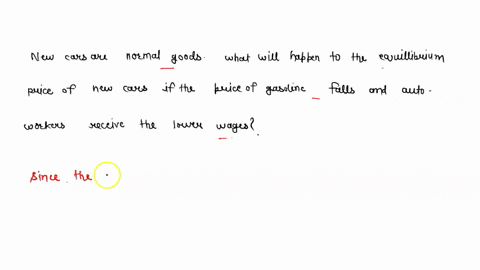 New cars are normal goods. what will happen to the equillibrium
price of new cars if the price of gasoline falls and auto-
workers receive the lower wages?
Since the